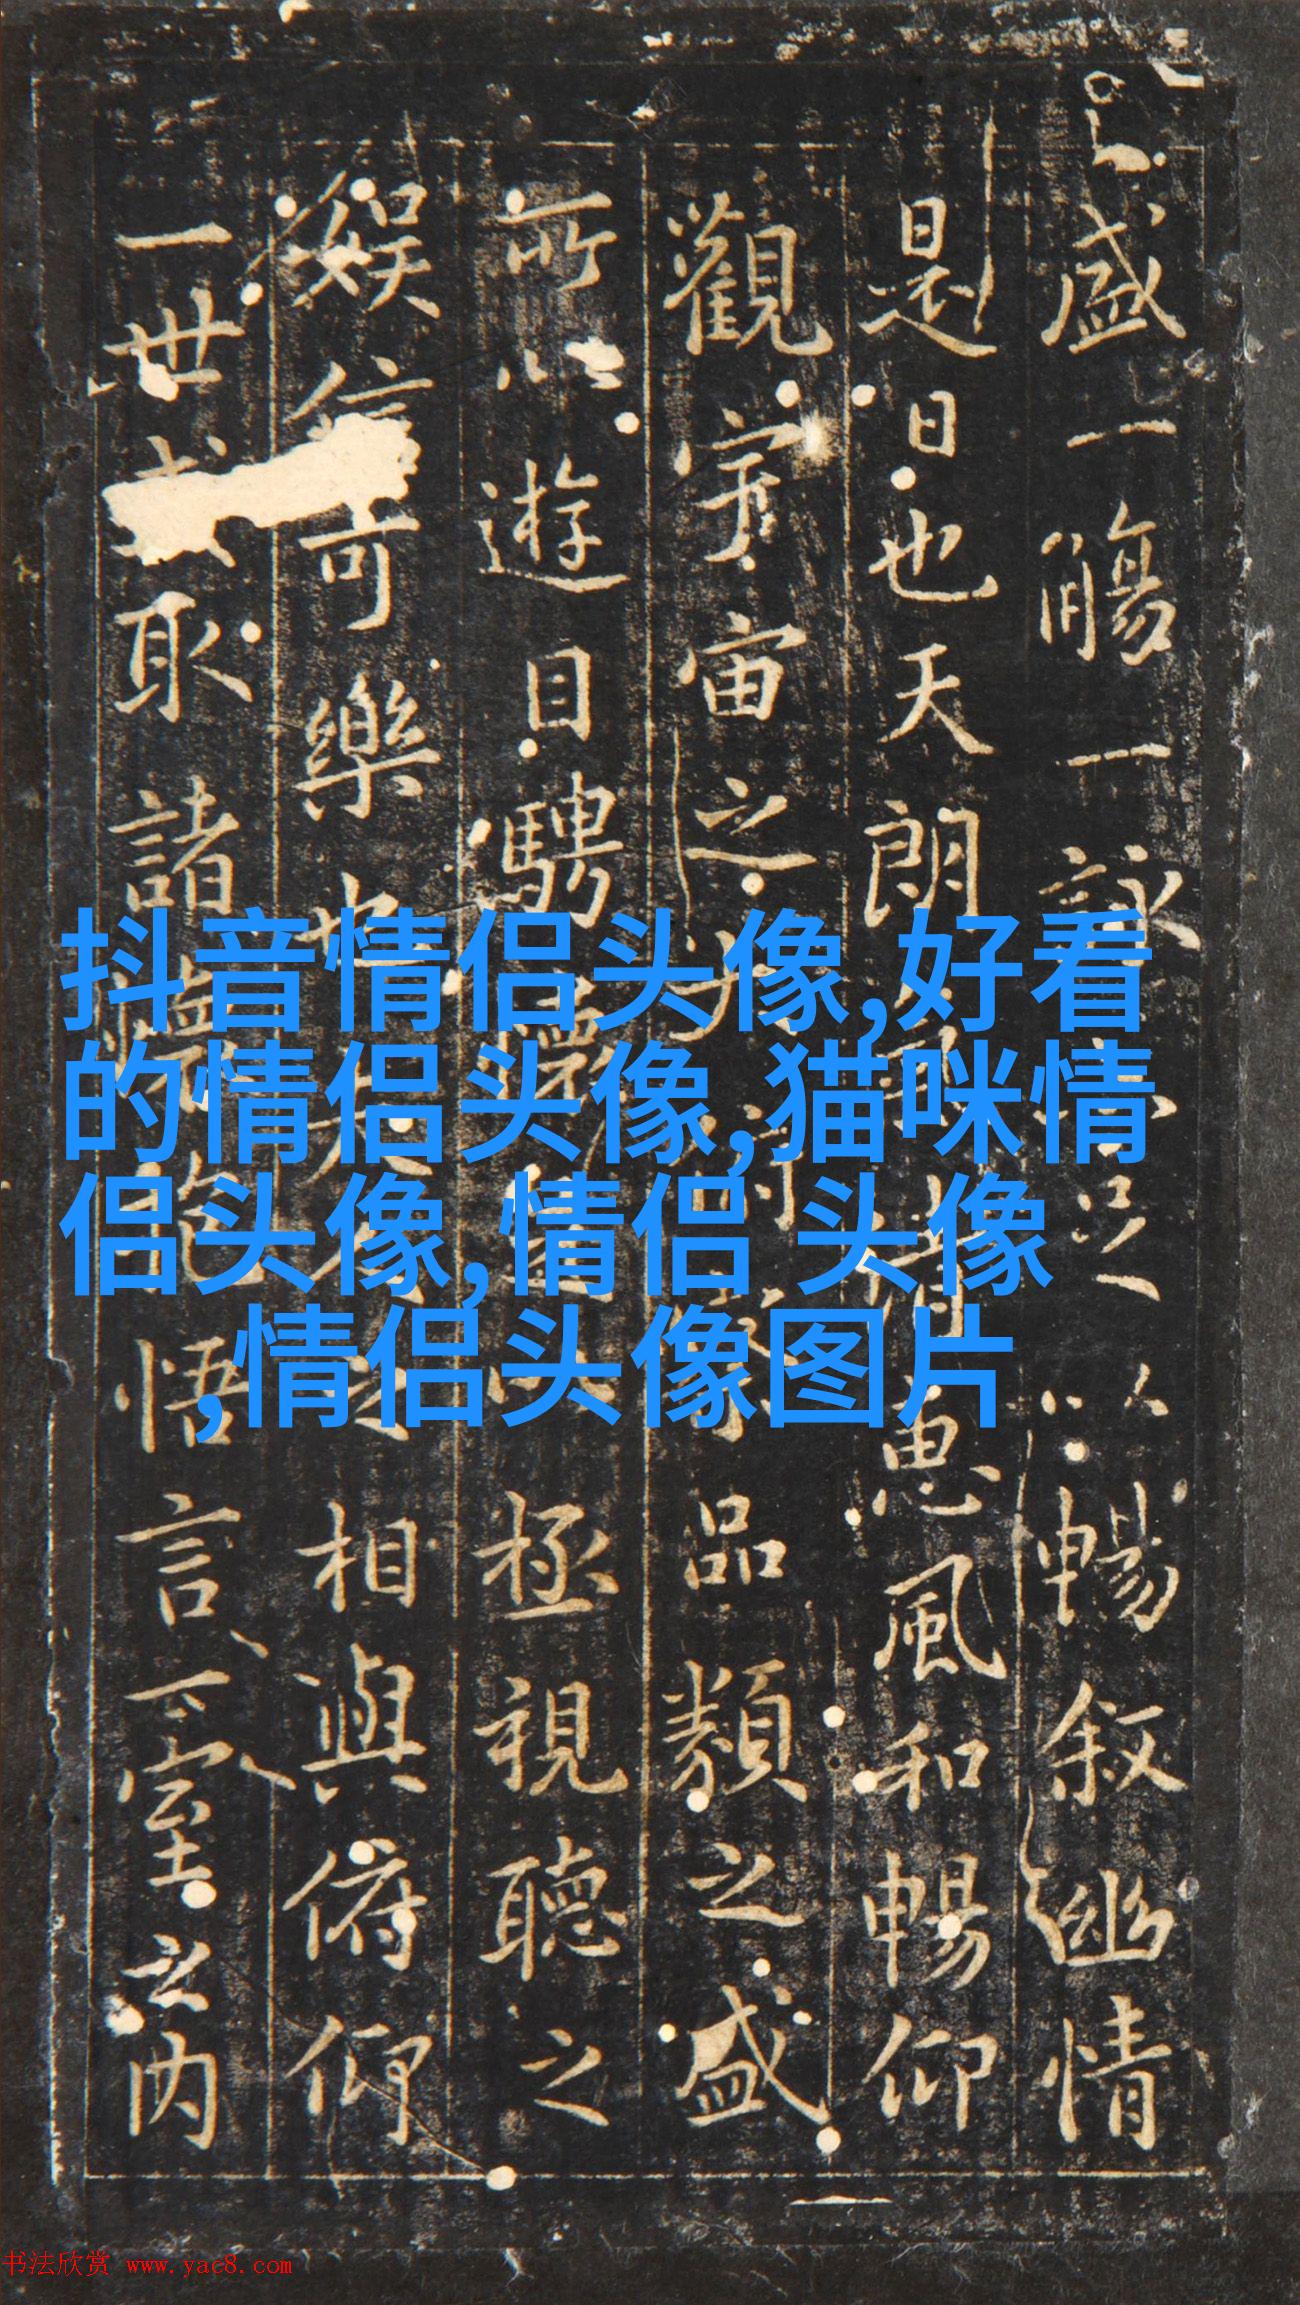 盛一觴一詠亦足以暢叙幽情
是日也天朗氣清惠風和暢仰
觀宇宙之大俯察品類之盛
所以遊目騁懷足以極視聽之
娛信可樂也夫人之相與俯仰
一世取諸懷抱悟言一室之内
抖音情侣头像,好看
的情侣头像,猫咪情
侣头像,情侣 头像
,情侣头像图片
书法欣赏 www.yac8.com